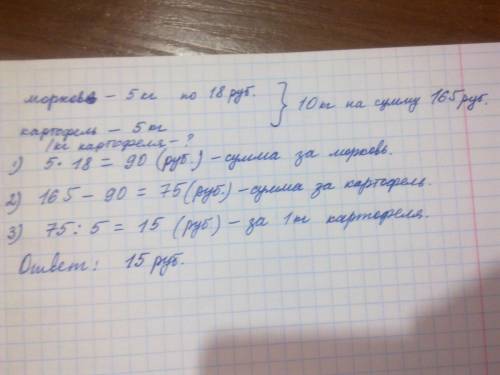 морковь – 5 кг по 18 руб. } 10 кг на сумму 165 руб.
картофель – 5 кг
1кг картофеля – ?
1) 5·18 = 90 (руб.) – сумма за морковь.
2) 165 – 90 = 75 (руб.) – сумма за картофель.
3) 75 : 5 = 15 (руб.) – за 1 кг картофеля.
Ответ: 15 руб.